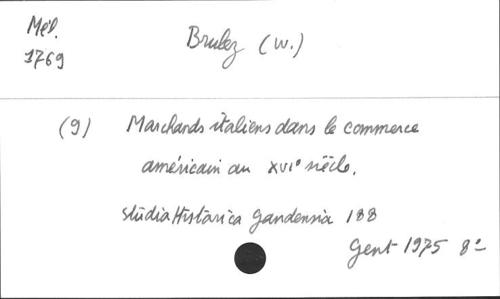 Méd.
1769
Brulez (W.)
(9) Marchands italiens dans le commerce
américain au XVIe siècle.
Studia Historica Gandensia 188
Gent 1975 8°